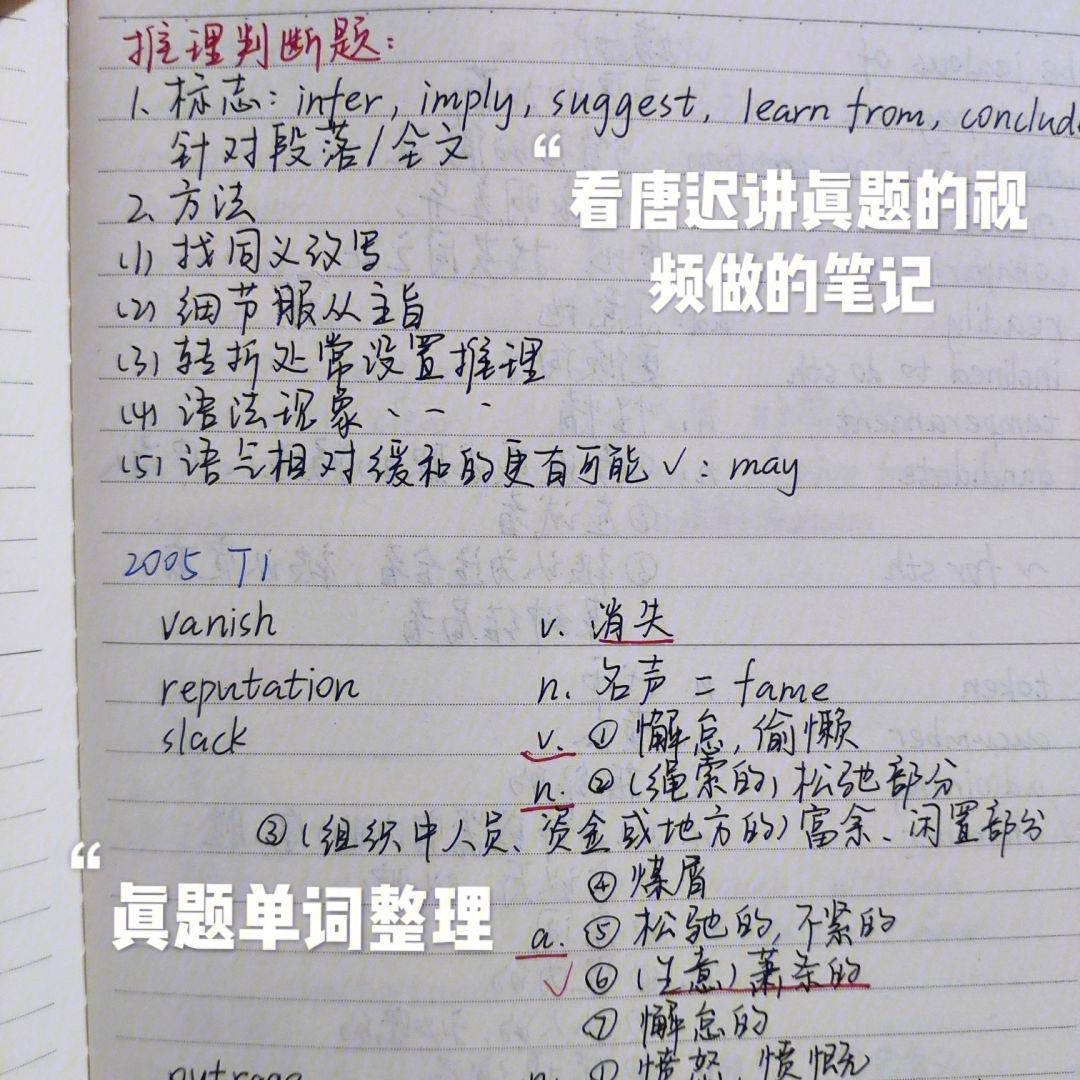 推理判断题:
1. 标志: infer, imply, suggest, learn from, conclud
针对段落/全文
“
看唐迟讲真题的视
频做的笔记
2. 方法
(1) 找同义改写
(2) 细节服从主旨
(3) 转折处常设置推理
(4) 语法现象 、— 、
(5) 语气相对缓和的更有可能✓: may
2005 T1
vanish v. 消失
reputation n. 名声 = fame
slack v. ① 懈怠, 偷懒
n. ② (绳索的) 松弛部分
③ (组织中人员、资金或地方的) 富余、闲置部分
“
真题单词整理
④ 煤屑
a. ⑤ 松弛的, 不紧的
✓ ⑥ (生意) 萧条的
⑦ 懈怠的
outrage n. ① 愤怒, 愤慨